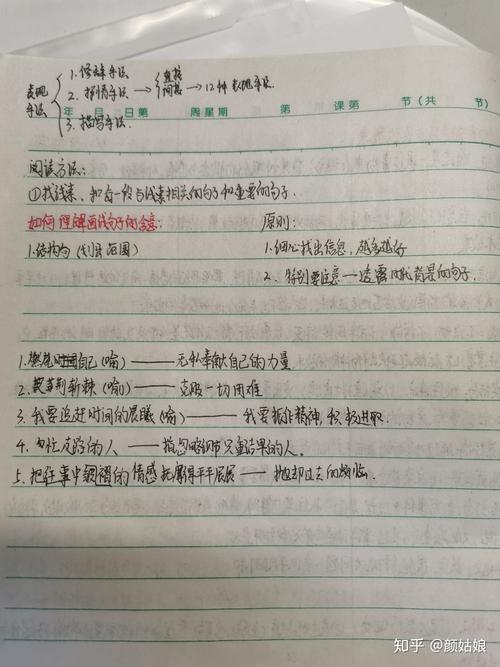 表现手法
1. 修辞手法
2. 抒情手法 → 直接 间接 → 12种表现手法.
3. 描写手法.
年 月 日第 周星期 第 课第 节(共 节)
阅读方法:
①找线索, 把每一段与线索相关的句子和重要的句子.
如何理解画线句子的含意: 原则:
1. 结构为 (划出范围) 1. 细心找出信息, 越多越好
2. 特别要注意一透露时代背景的句子.
1. 燃烧自己(喻) —— 无私奉献自己的力量
2. 披荆斩棘(喻) —— 克服一切困难
3. 我要追赶时间的晨曦(喻) —— 我要振作精神, 积极进取.
4. 匆忙走路的人 —— 指忽略细节只重结果的人.
5. 把往事中皱褶的情感抚摩得平平展展 —— 抛却过去的烦恼.
知乎 @颜姑娘